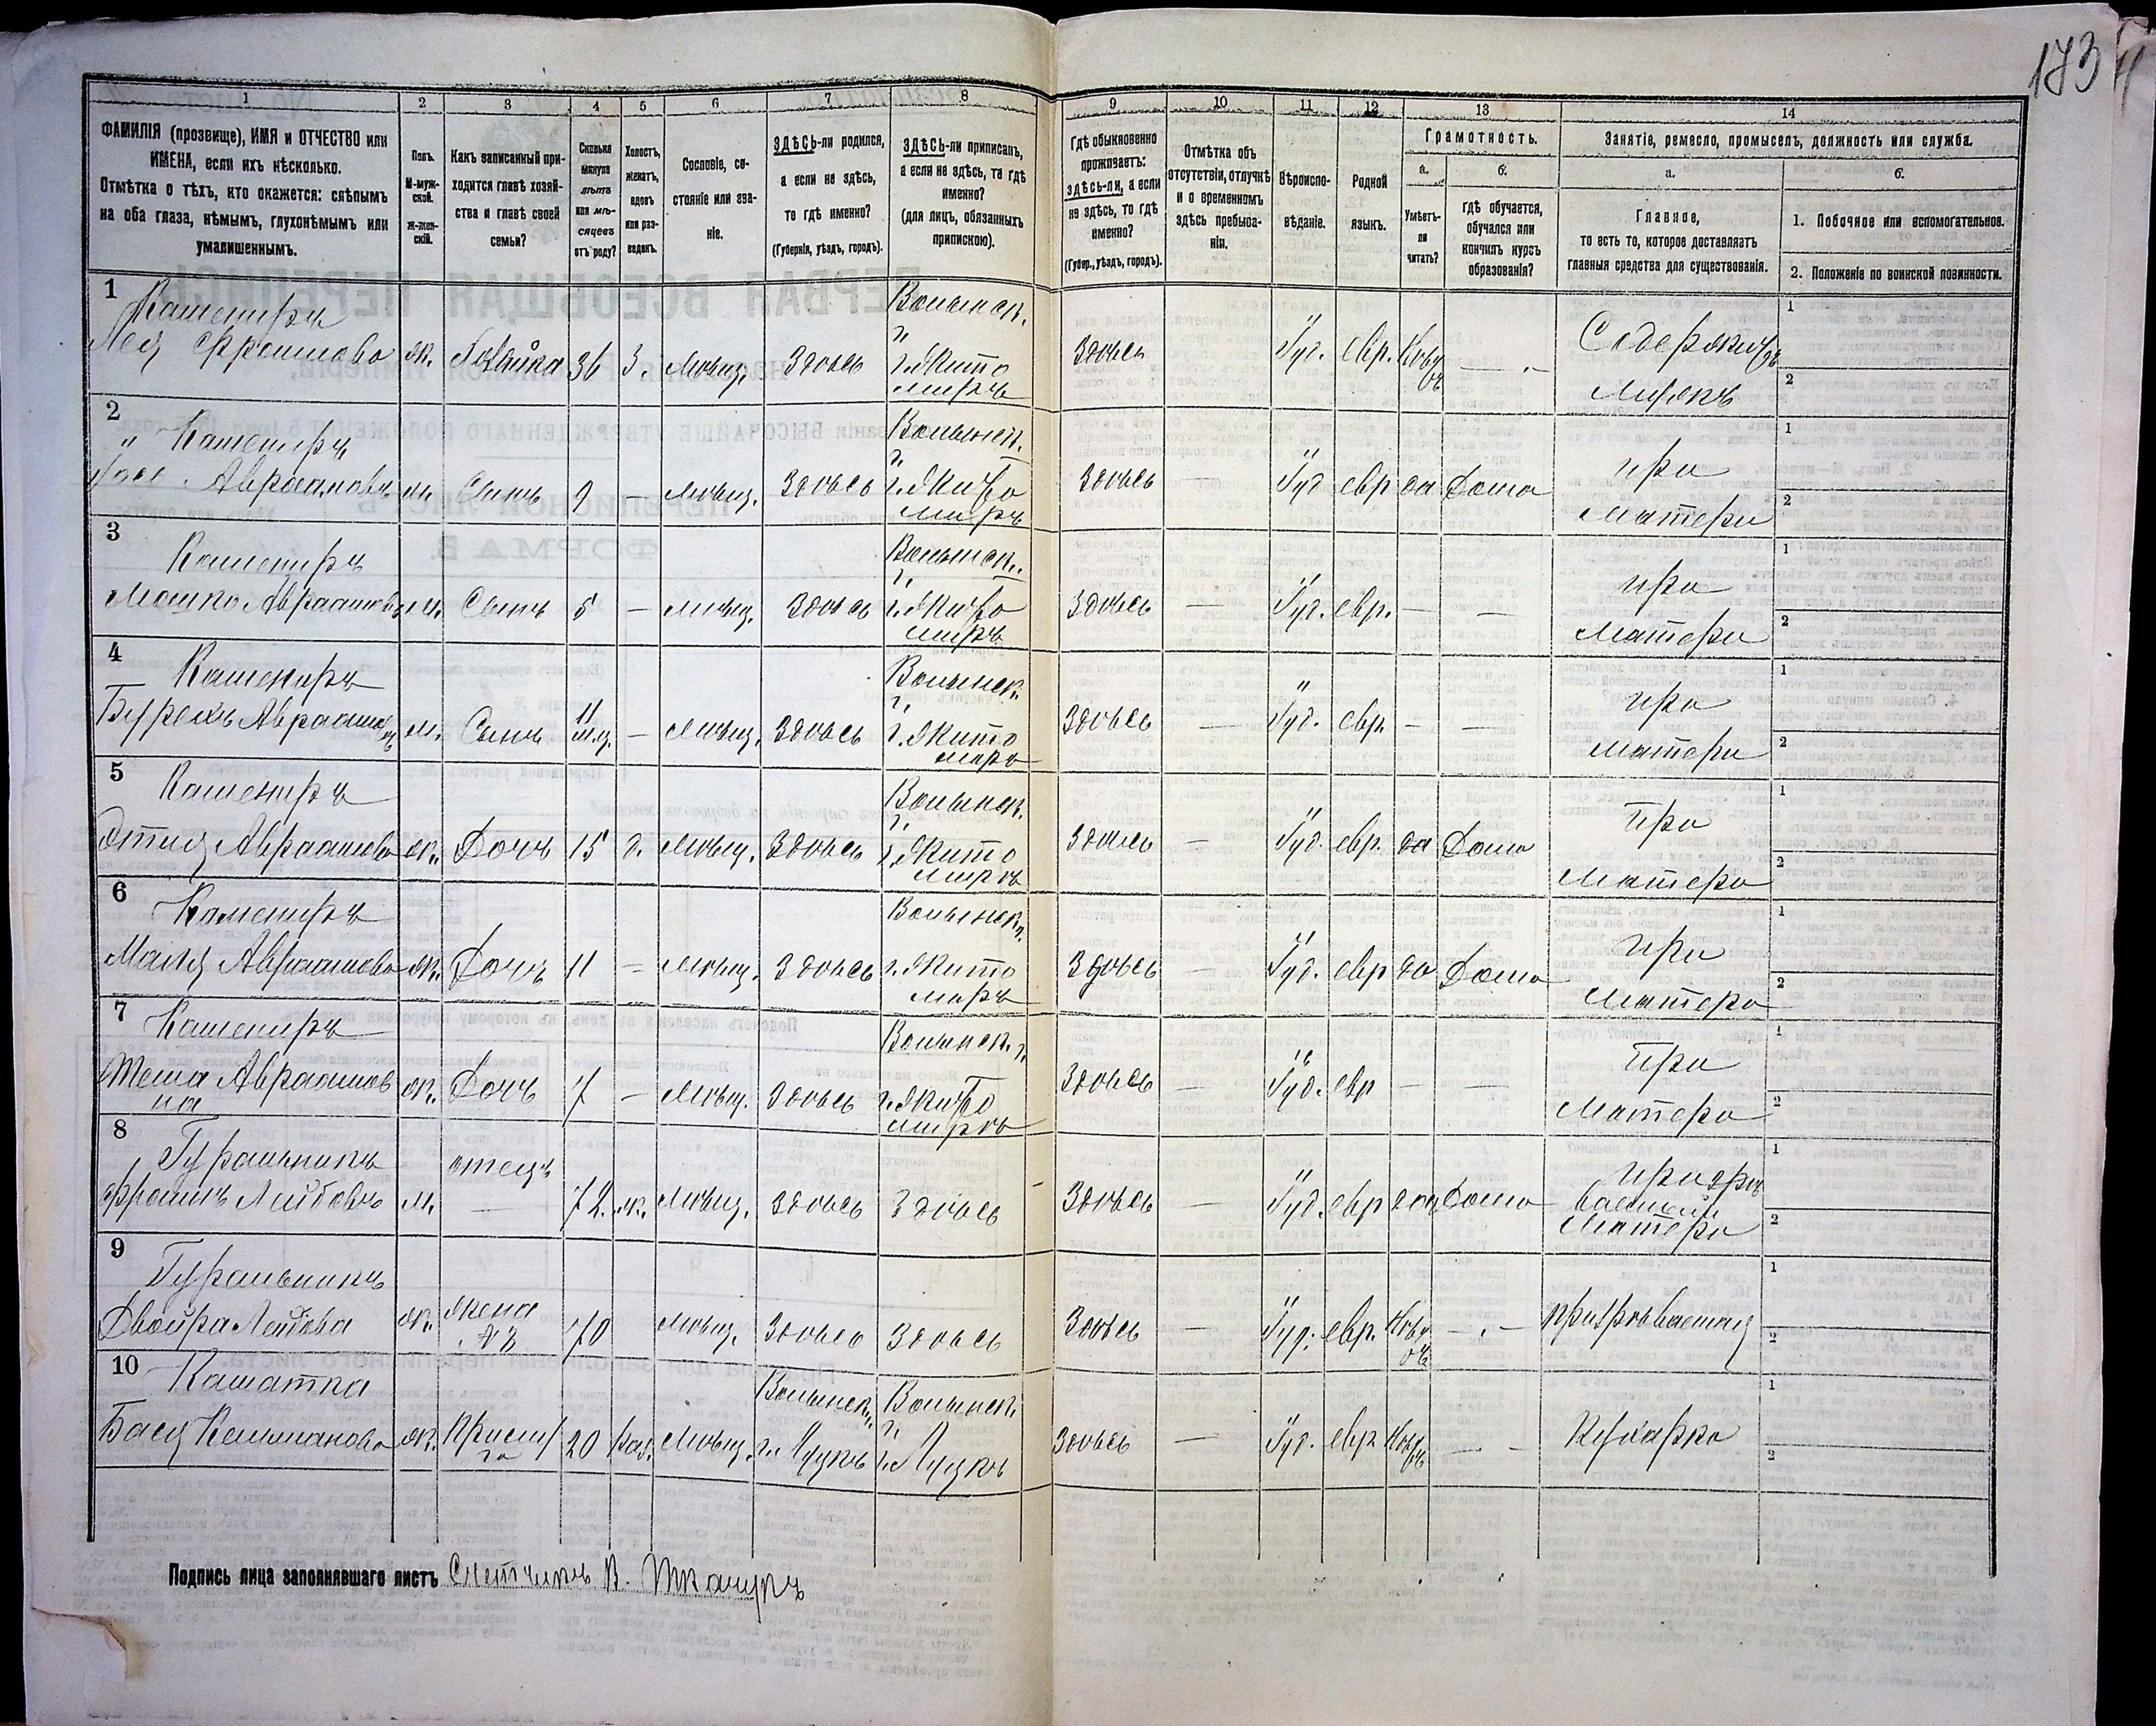 173
1 2 3 4 5 6 7 8 9 10 11 12 13 14
ФАМИЛІЯ (прозвище), ИМЯ и ОТЧЕСТВО или
ИМЕНА, если ихъ нѣсколько.
Отмѣтка о тѣхъ, кто окажется: слѣпымъ
на оба глаза, нѣмымъ, глухонѣмымъ или
умалишеннымъ.
Полъ.
М-муж-
ской.
Ж-жен-
скій.
Какъ записанный при-
ходится главѣ хозяй-
ства и главѣ своей
семьи?
Сколько
минуло
лѣтъ
или мѣ-
сяцевъ
отъ роду?
Холостъ,
женатъ,
вдовъ
или раз-
веденъ.
Сословіе, со-
стояніе или зва-
ніе.
ЗДѢСЬ-ли родился,
а если не здѣсь,
то гдѣ именно?
(Губернія, уѣздъ, городъ).
ЗДѢСЬ-ли приписанъ,
а если не здѣсь, то гдѣ
именно?
(для лицъ, обязанныхъ
припискою).
Гдѣ обыкновенно
проживаетъ:
здѣсь-ли, а если
не здѣсь, то гдѣ
именно?
(Губер., уѣздъ, городъ).
Отмѣтка объ
отсутствіи, отлучкѣ
и о временномъ
здѣсь пребыва-
ніи.
Вѣроиспо-
вѣданіе.
Родной
языкъ.
Грамотность.
а.
Умѣетъ-
ли
читать?
б.
гдѣ обучается,
обучался или
кончилъ курсъ
образованія?
Занятіе, ремесло, промыселъ, должность или служба.
а.
Главное,
то есть то, которое доставляетъ
главныя средства для существованія.
б.
1. Побочное или вспомогательное.
2. Положеніе по воинской повинности.
1 Кашениръ Волынск.
г.
Лея ж. 36 З. мѣщ. Здѣсь г. Жито
миръ
Здѣсь Іуд. евр. —
2 " Кашениръ Волынск.
г.
Авраамовъ м. Сынъ 9 — мѣщ. Здѣсь г. Жито
миръ
Здѣсь — Іуд евр да Дома при
матери
3 Кашениръ Волынск.
г.
Мошко Авраамов м. Сынъ 5 — мѣщ. Здѣсь г. Жито
миръ
Здѣсь — Іуд. евр. — — при
матери
4 Кашениръ Волынск.
г.
Авраамов м. Сынъ 11 м.ц. — мѣщ. Здѣсь г. Жито
миръ
Здѣсь — Іуд. евр. — — при
матери
5 Кашениръ Волынск.
г.
Авраамова ж. Дочь 15 д. мѣщ. Здѣсь г. Жито
миръ
Здѣсь — Іуд. евр. да Дома при
матери
6 Кашениръ Волынск. г.
Авраамова ж. Дочь 11 — мѣщ. Здѣсь г. Жито
миръ
Здѣсь — Іуд. евр да Дома при
матери
7 Кашениръ Волынск. г.
Авраамов
на ж. Дочь 7 — мѣщ. Здѣсь г. Жито
миръ
Здѣсь — Іуд. евр — — при
матери
8 Гуральникъ отецъ
Лейбовъ м. — 72. ж. мѣщ. Здѣсь Здѣсь
Здѣсь — Іуд. евр да Дома
матери
9 Гуральникъ
Двойра Лейбова ж. жена
№ 8 70 мѣщ. Здѣсь Здѣсь
Здѣсь — Іуд. евр. — призрѣваемая
10 Волынск. г. Волынск.
г.
Бася ж. Прислу
га 20 мѣщ. г. Луцкъ г. Луцкъ
Здѣсь — Іуд. евр — Кухарка
Подпись лица заполнявшаго листъ Счетчикъ В. Ткачукъ